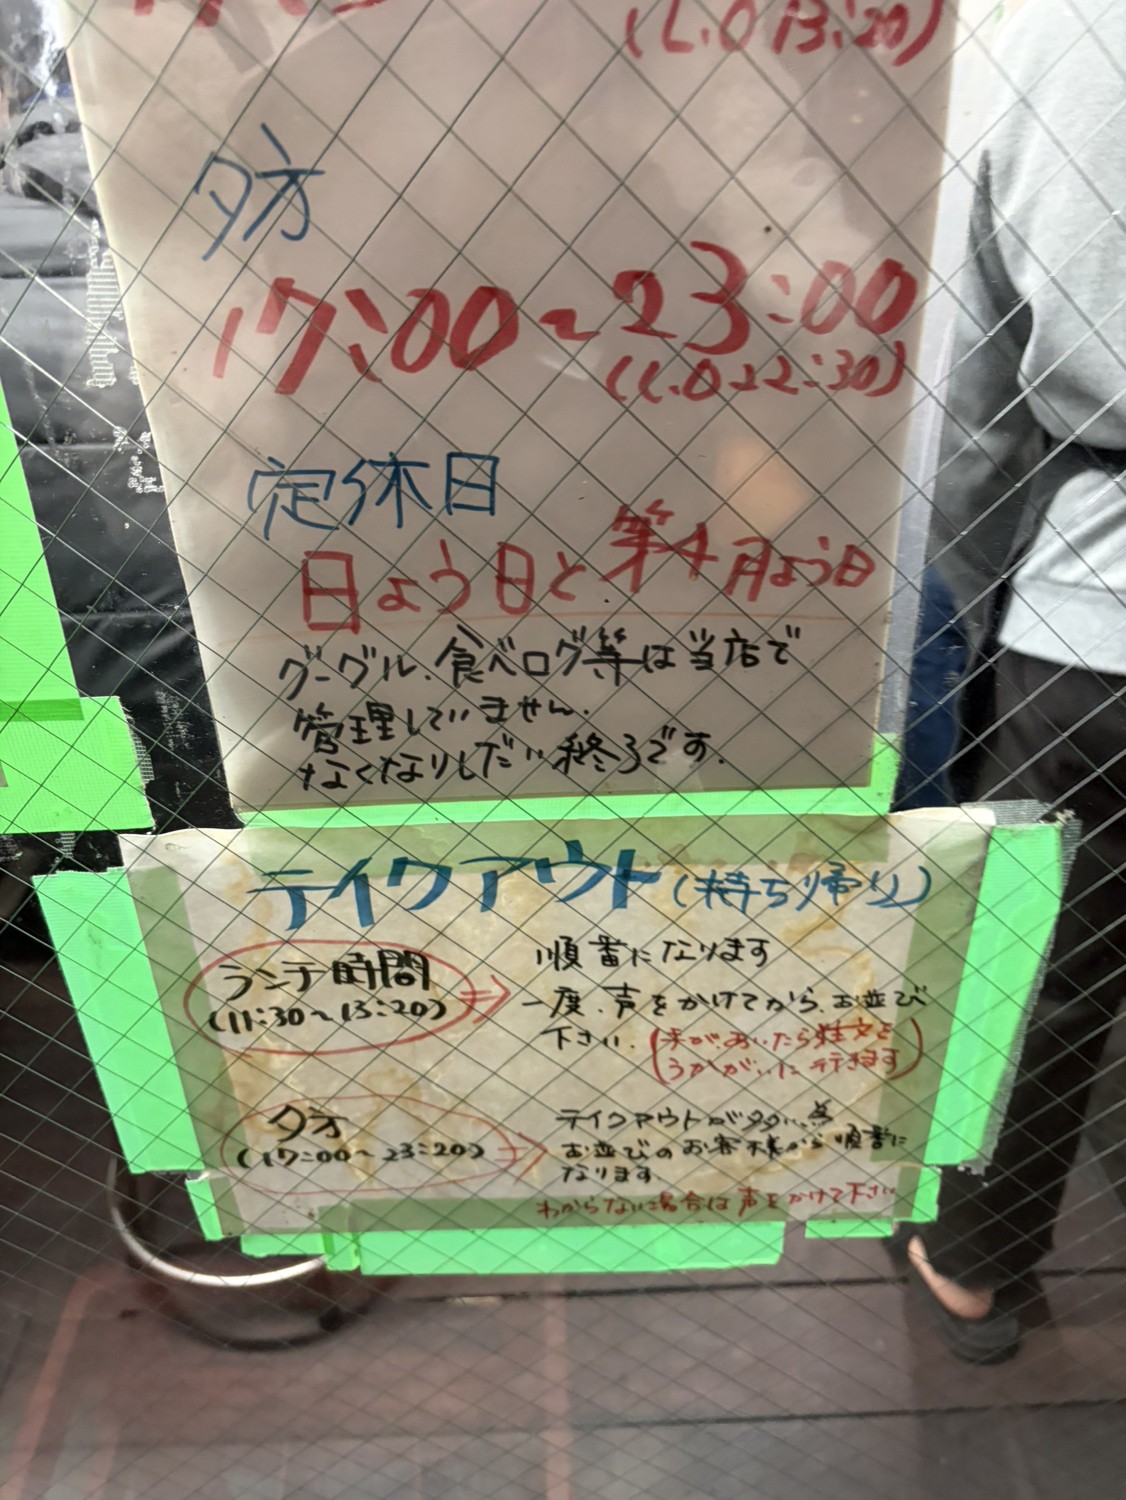 (L.O 13:20)
夕方
17:00～23:00
(L.O 22:30)
定休日
日よう日と第4月よう日
グーグル、食べログ等は当店で
管理していません。
なくなりしだい終了です。
テイクアウト(持ち帰り)
ランチ時間
(11:30～13:20)
⇒
順番になります
一度、声をかけてから、お並び
下さい。
(手があいたら注文を
うかがいに行きます)
夕方
(17:00～23:20)
⇒
テイクアウトが多い為
お並びのお客様から順番に
なります。
わからない場合は声をかけて下さい